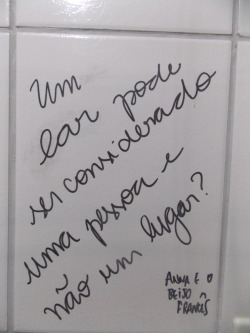 Um
lar pode
ser considerado
uma pessoa e
não um lugar?
ANNA E O
BEIJO
FRANCÊS